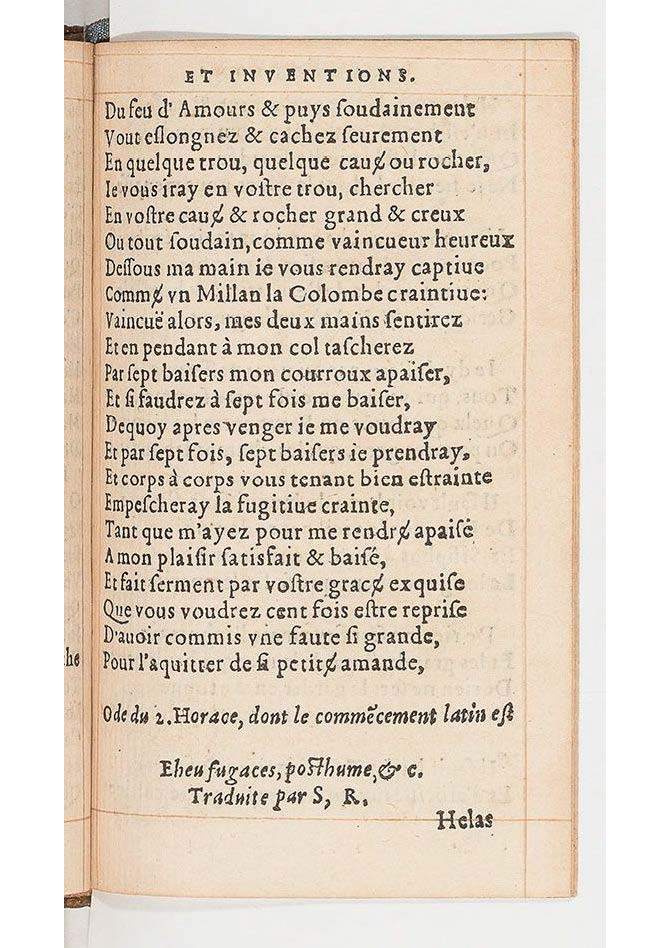 ET INVENTIONS.
Du feu d' Amours & puys ſoudainement
Vout eſlongnez & cachez ſeurement
En quelque trou, quelque cauɇ ou rocher,
Ie vous iray en voſtre trou, chercher
En voſtre cauɇ & rocher grand & creux
Ou tout ſoudain, comme vaincueur heureux
Deſſous ma main ie vous rendray captiue
Commɇ vn Millan la Colombe craintiue:
Vaincuë alors, mes deux mains ſentirez
Et en pendant à mon col taſcherez
Par ſept baiſers mon courroux apaiſer,
Et ſi faudrez à ſept fois me baiſer,
Dequoy apres venger ie me voudray
Et par ſept fois, ſept baiſers ie prendray,
Et corps à corps vous tenant bien eſtrainte
Empeſcheray la fugitiue crainte,
Tant que m'ayez pour me rendrɇ apaiſé
A mon plaiſir ſatisfait & baiſé,
Et fait ſerment par voſtre gracɇ exquiſe
Que vous voudrez cent fois eſtre repriſe
D'auoir commis vne faute ſi grande,
Pour l'aquitter de ſi petitɇ amande,
Ode du 2. Horace, dont le commẽcement latin eſt
Eheu fugaces, poſthume, & c.
Traduite par S, R.
Helas
he